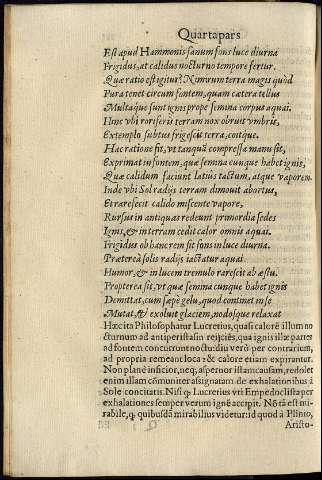 Quarta pars
Est apud Hammonis fanum fons luce diurna
Frigidus, at calidus nocturno tempore fertur.
Quæ ratio est igitur? Nimirum terra magis quòd
Pura tenet circum fontem, quam cætera tellus
Multaque sunt ignis prope semina corpus aquai.
Hinc vbi roriferis terram nox obruit vmbris,
Extemplo subtus frigescit terra, coitque.
Hac ratione fit, vt tanquā compressa manu sit,
Exprimat in fontem, quæ semina cunque habet ignis,
Quæ calidum faciunt laticis tactum, atque vaporem.
Inde vbi Sol radijs terram dimouit abortus,
Et rarefecit calido miscente vapore,
Rursus in antiquas redeunt primordia sedes
Ignis, & in terram cedit calor omnis aquai.
Frigidus ob hanc rem fit fons in luce diurna.
Præterea solis radijs iactatur aquai
Humor, & in lucem tremulo rarescit ab æstu.
Propterea fit, vt quæ semina cunque habet ignis
Demittat, cum sæpè gelu, quod continet in se
Mutat, & exoluit glaciem, nodosque relaxat
Hæc ita Philosophatur Lucretius, quasi calorē illum no
cturnum ad antiperistasin reijciēs, qua ignis illæ partes
ad fontem concurrunt noctu: diu verò per contrarium,
ad propria remeant loca: & calore etiam expirantur.
Non planè inficior, neq; aspernor istam causam, redolet
enim illam cōmuniter assignatam de exhalationibus à
Sole concitatis. Nisi q̧ Lucretius vti Empedoclista per
exhalationes semper verum ignē accipit. Nō tā est mi-
rabile, q̧ quibusdā mirabilius videtur: id quod à Plinio,
Aristo-